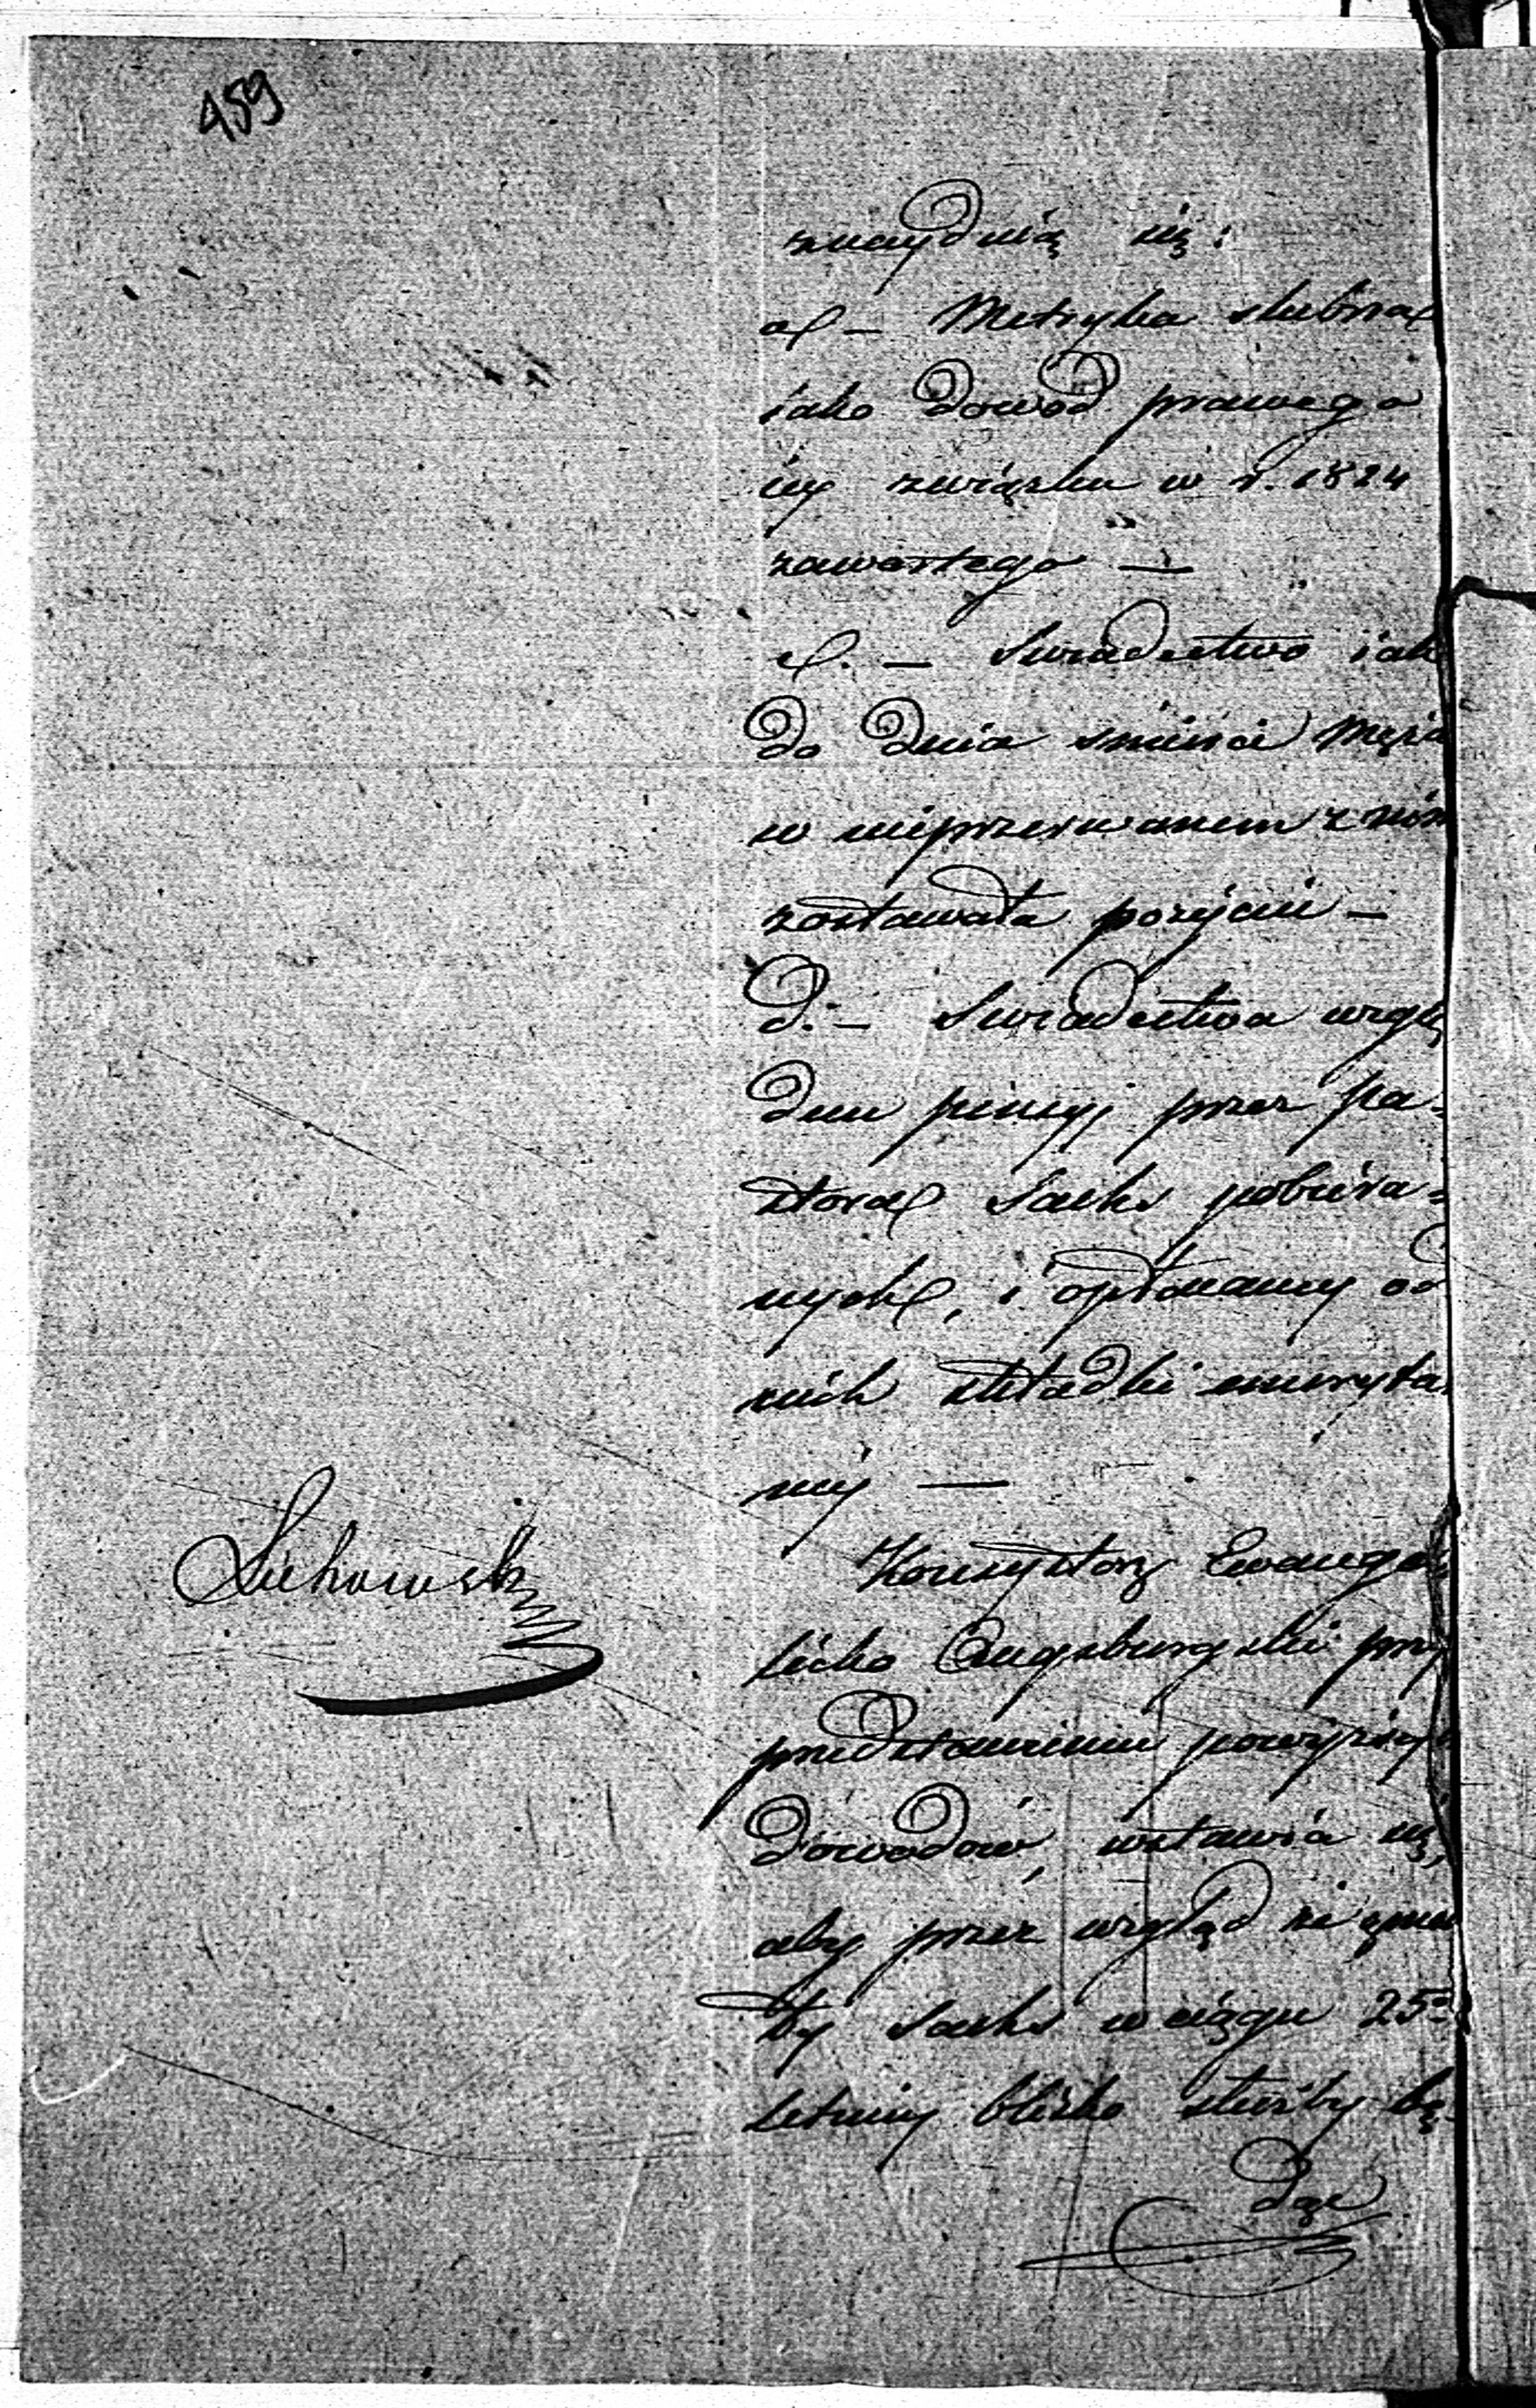 459
znayduią się:
a – Metryka slubna
iako dowód prawego
iey związku w r. 1824
zawartego —
c. — Swiadectwo iak
do dnia smierci Męża
w nieprzerwanem z nim
zostawała pożyciu –
d. – Swiadectwa wzglę
dem pensyi przez Pa-
stora Sachs pobiera-
nych, i opłacaney od
nich składki emeryta
ney —
Konsystorz Ewange-
licko Augsburgski przy
przedstawieniu powyższych
dowodów, wstawia się,
aby przez wzgląd że
Sachs w ciągu 25-
letniey blisko służby bę-
dąc